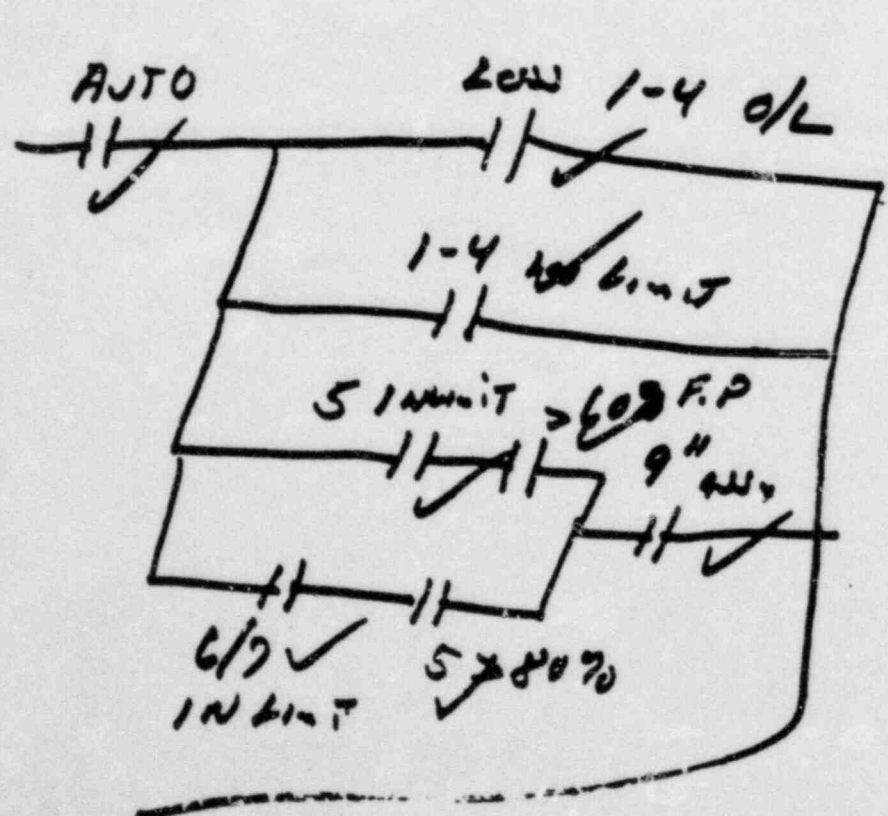 AUTO
LOW 1-4 O/L
1-4 LIMIT
5 IN LIMIT >60% F.P
9"
6/7
IN LIMIT
5 >80%